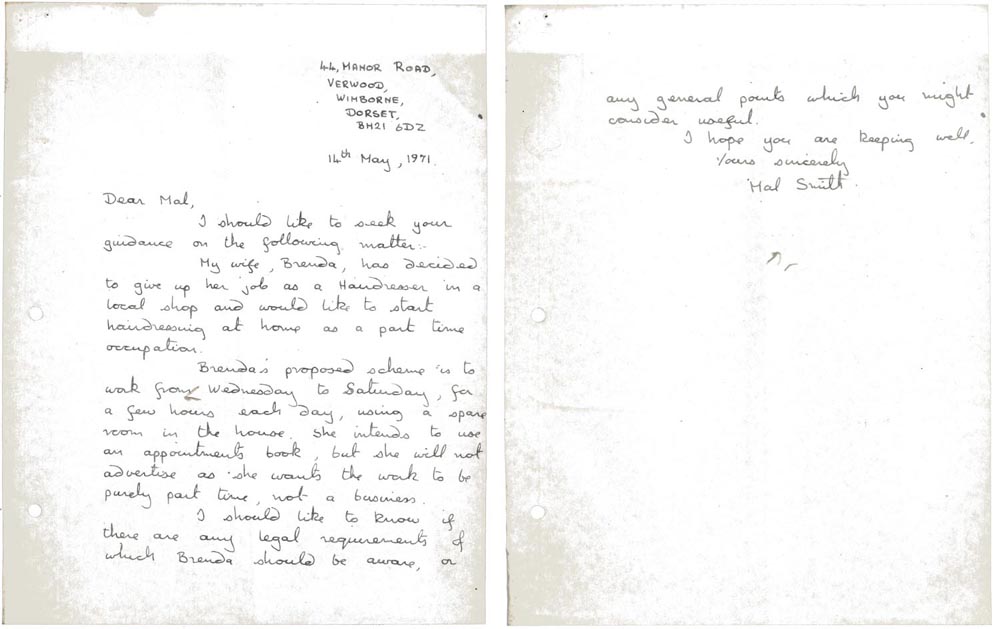 44, MANOR ROAD,
VERWOOD,
WIMBORNE,
DORSET,
BH21 6DZ
14th May, 1971.
Dear Mal,
I should like to seek your
guidance on the following matter:-
My wife, Brenda, has decided
to give up her job as a Hairdresser in a
local shop and would like to start
hairdressing at home as a part time
occupation.
Brenda's proposed scheme is to
work from Wednesday to Saturday, for
a few hours each day, using a spare
room in the house. She intends to use
an appointments book, but she will not
advertise as she wants the work to be
purely part time, not a business.
I should like to know if
there are any legal requirements of
which Brenda should be aware, or
any general points which you might
consider useful.
I hope you are keeping well.
Yours sincerely
Mal Smith.